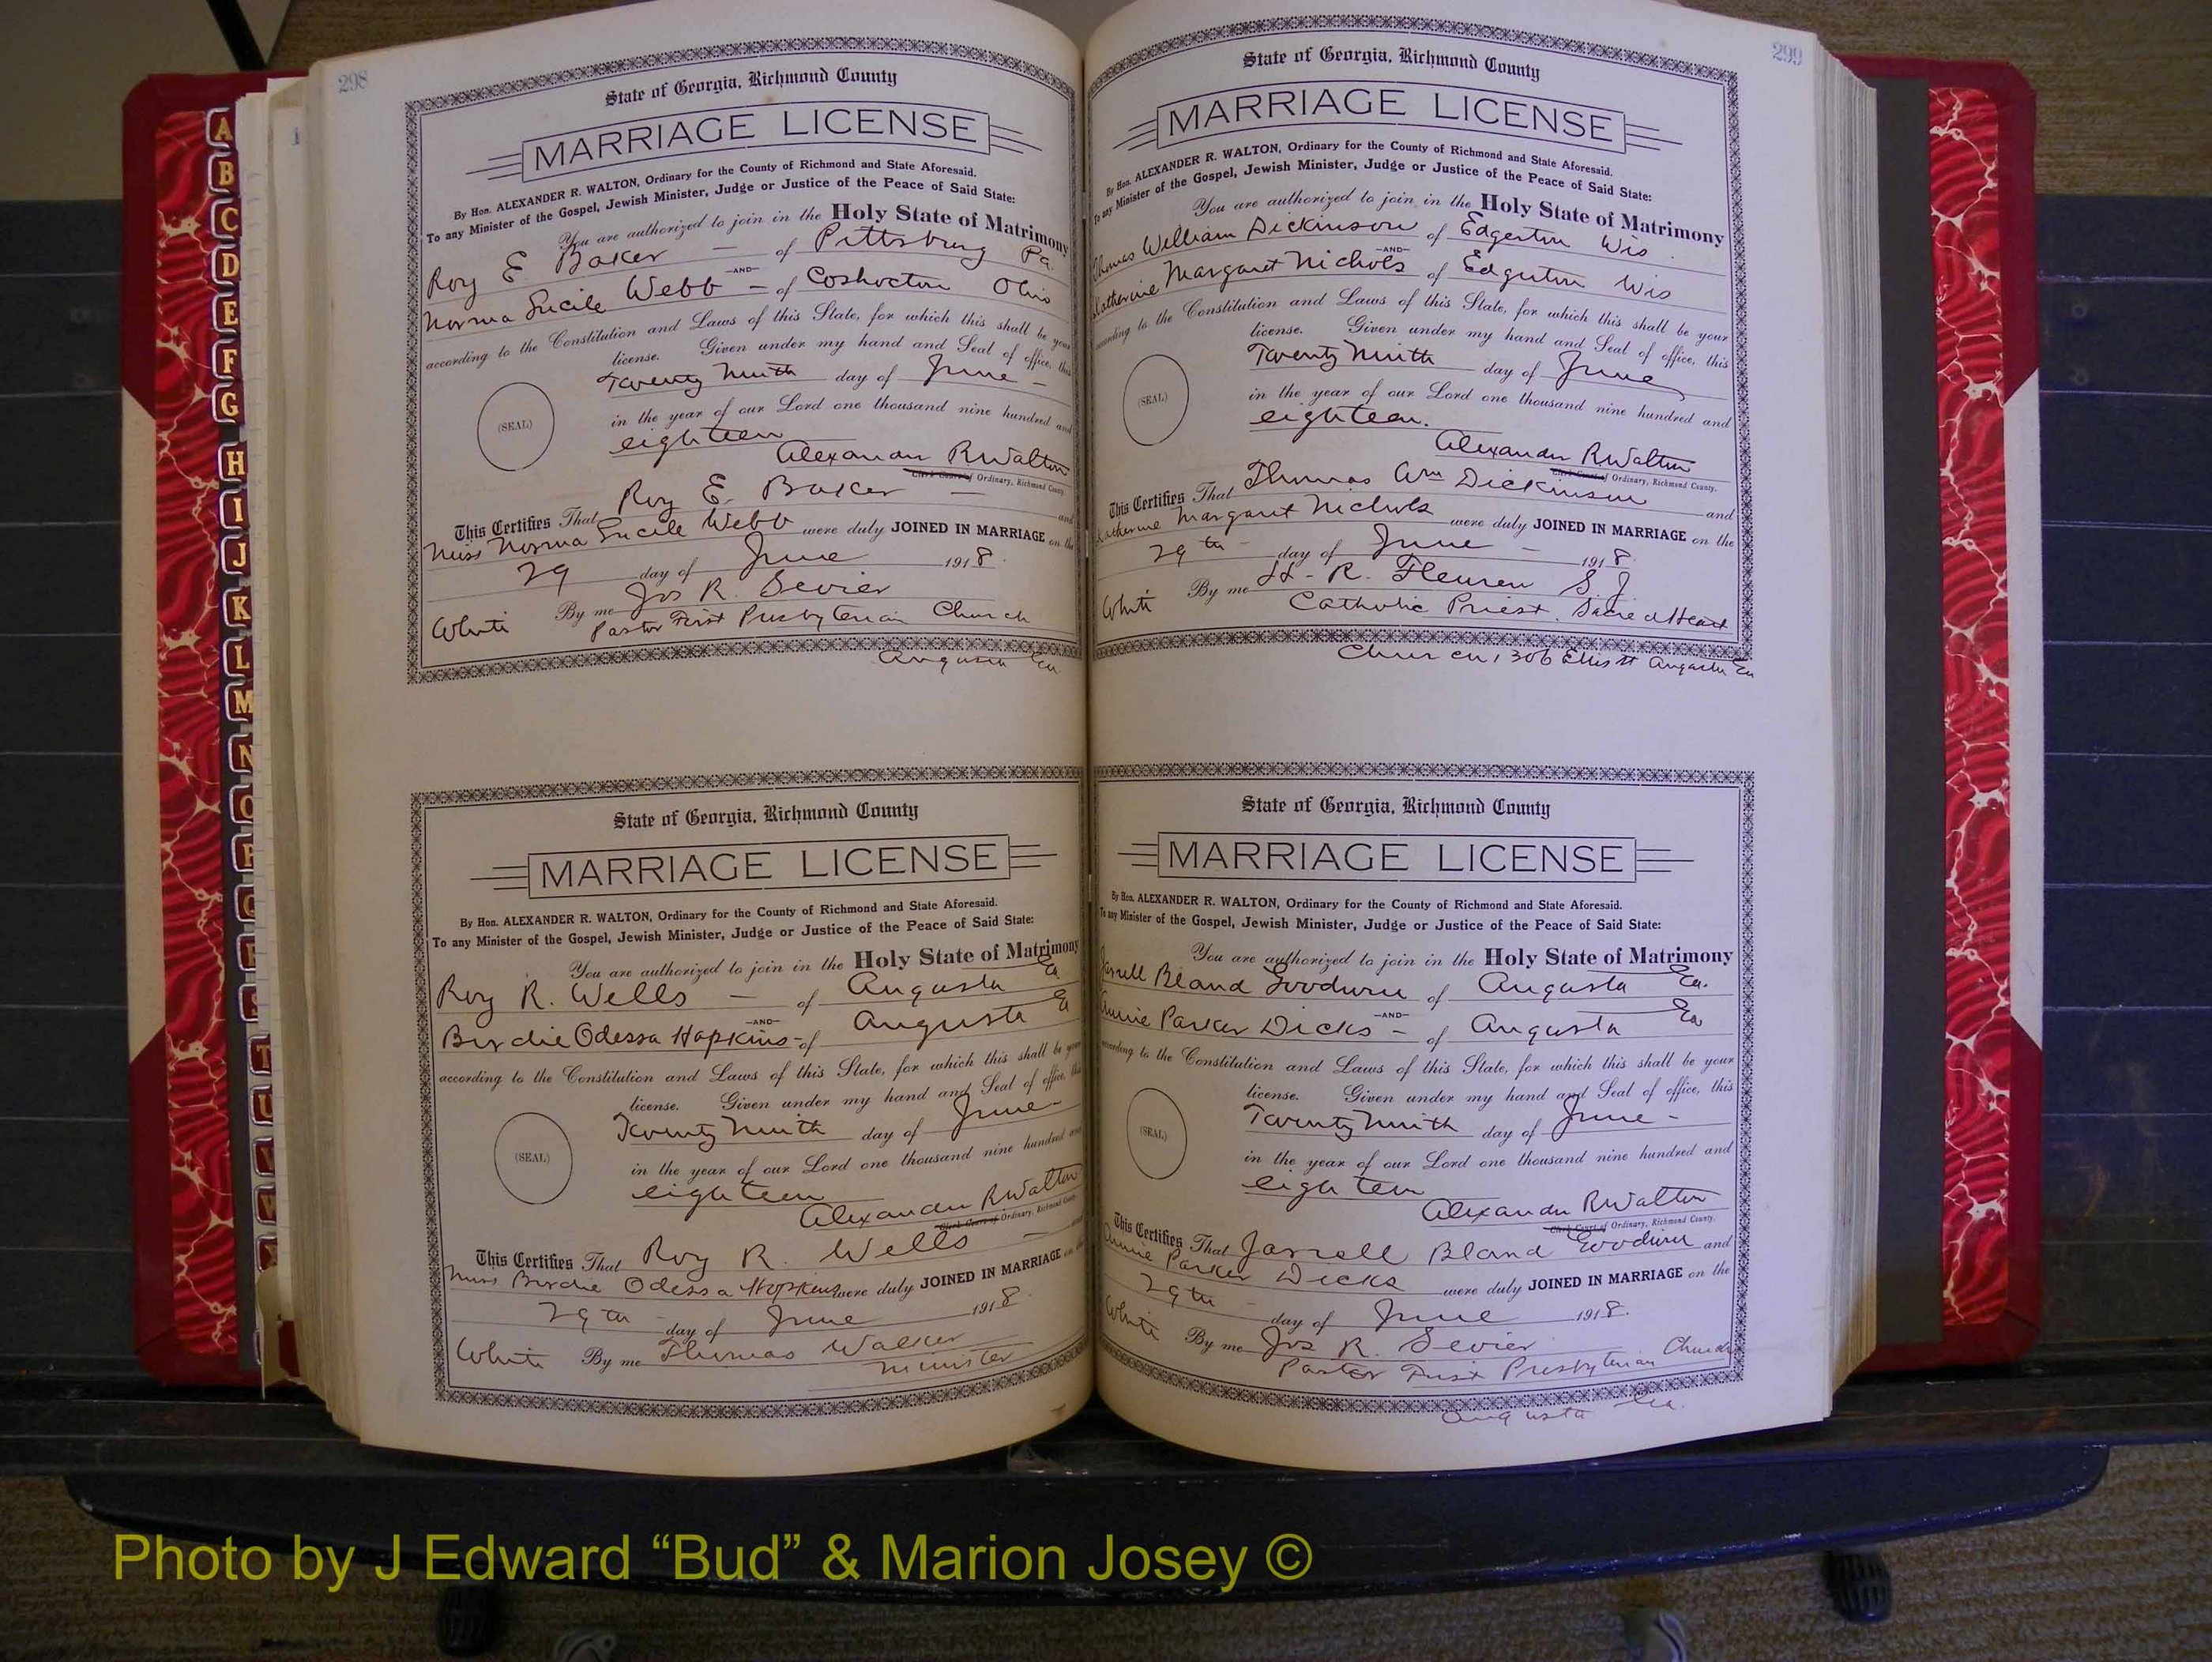 298
State of Georgia, Richmond County
MARRIAGE LICENSE
By Hon. ALEXANDER R. WALTON, Ordinary for the County of Richmond and State Aforesaid.
To any Minister of the Gospel, Jewish Minister, Judge or Justice of the Peace of Said State:
You are authorized to join in the Holy State of Matrimony
Roy E Baker — of Pittsburg Pa.
—AND—
Norma Lucile Webb — of Coshocton Ohio
according to the Constitution and Laws of this State, for which this shall be your
license. Given under my hand and Seal of office, this
Twenty Ninth day of June —
(SEAL)
in the year of our Lord one thousand nine hundred and
eighteen
Alexander R Walton
Clerk Court of Ordinary, Richmond County.
This Certifies That Roy E. Baker — and
Miss Norma Lucile Webb were duly JOINED IN MARRIAGE on the
29 day of June 1918.
White By me Jos R. Sevier
Pastor First Presbyterian Church
Augusta Ga
State of Georgia, Richmond County
MARRIAGE LICENSE
By Hon. ALEXANDER R. WALTON, Ordinary for the County of Richmond and State Aforesaid.
To any Minister of the Gospel, Jewish Minister, Judge or Justice of the Peace of Said State:
You are authorized to join in the Holy State of Matrimony
Roy R. Wells — of Augusta Ga
—AND—
Birdie Odessa Hopkins - of Augusta Ga
according to the Constitution and Laws of this State, for which this shall be your
license. Given under my hand and Seal of office, this
Twenty Ninth day of June -
(SEAL)
in the year of our Lord one thousand nine hundred and
eighteen
Alexander R Walton
Clerk Court of Ordinary, Richmond County.
This Certifies That Roy R. Wells — and
Miss Birdie Odessa Hopkins were duly JOINED IN MARRIAGE on the
29th day of June 1918.
White By me Thomas Walker
Minister
299
State of Georgia, Richmond County
MARRIAGE LICENSE
By Hon. ALEXANDER R. WALTON, Ordinary for the County of Richmond and State Aforesaid.
To any Minister of the Gospel, Jewish Minister, Judge or Justice of the Peace of Said State:
You are authorized to join in the Holy State of Matrimony
Thomas William Dickinson of Edgerton Wis
—AND—
Katherine Margaret Nichols of Edgerton Wis
according to the Constitution and Laws of this State, for which this shall be your
license. Given under my hand and Seal of office, this
Twenty Ninth day of June
(SEAL)
in the year of our Lord one thousand nine hundred and
eighteen.
Alexander R Walton
Clerk Court of Ordinary, Richmond County.
This Certifies That Thomas Wm Dickinson and
Katherine Margaret Nichols were duly JOINED IN MARRIAGE on the
29th day of June — 1918.
White By me R. Fleuren S. J.
Catholic Priest. Sacred Heart
Church, 1306 Ellis St Augusta Ga
State of Georgia, Richmond County
MARRIAGE LICENSE
By Hon. ALEXANDER R. WALTON, Ordinary for the County of Richmond and State Aforesaid.
To any Minister of the Gospel, Jewish Minister, Judge or Justice of the Peace of Said State:
You are authorized to join in the Holy State of Matrimony
Jarrell Bland Goodwin of Augusta Ga.
—AND—
Annie Parker Dicks - of Augusta Ga
according to the Constitution and Laws of this State, for which this shall be your
license. Given under my hand and Seal of office, this
Twenty Ninth day of June -
(SEAL)
in the year of our Lord one thousand nine hundred and
eighteen
Alexander R Walton
Clerk Court of Ordinary, Richmond County.
This Certifies That Jarrell Bland Goodwin and
Annie Parker Dicks were duly JOINED IN MARRIAGE on the
29th day of June 1918.
White By me Jos R. Sevier
Pastor First Presbyterian Church
Augusta Ga.
A
B
C
D
E
F
G
H
I
J
K
L
M
N
O
P
Q
R
S
T
U
V
W
Photo by J Edward “Bud” & Marion Josey ©